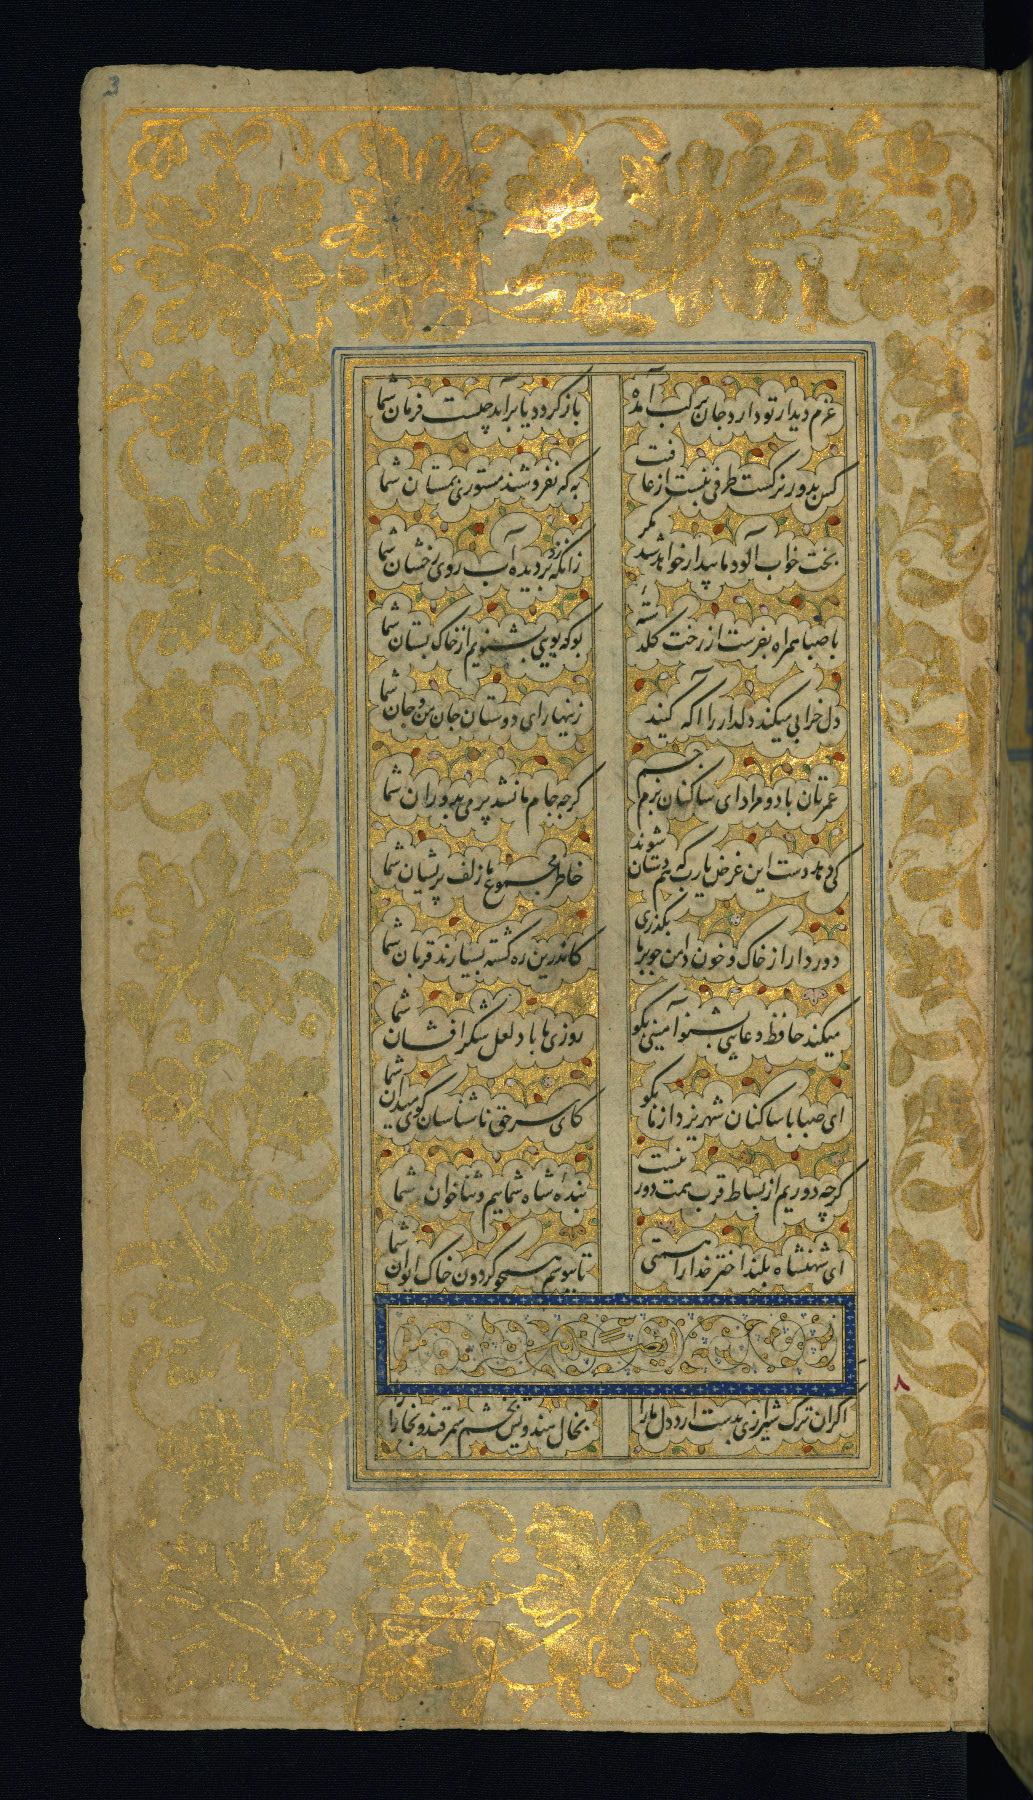 3
عزم دیدار تو دارد جان بر لب آمده باز کردد یا برآید چیست فرمان شما
کس بدور نرکست طرفی نبست از عافیت به که نفروشند مستوری بمستان شما
بخت خواب آلود ما بیدار خواهد شد مکر زانکه زد بر دیده آب روی رخشان شما
با صبا همراه بفرست از رخت کلدستهٔ بو که بویی بشنویم از خاک بستان شما
دل خرابی میکند دلدار را آکه کنید زینهار ای دوستان جان من و جان شما
عمرتان باد و مراد ای ساکنان بزم جم کرچه جام ما نشد پر می بدوران شما
کی دهد دست این غرض یارب که همدستان شوند خاطر مجموع ما زلف پریشان شما
دور دار از خاک و خون دامن جو بر ما بکذری کاندرین ره کشته بسیارند قربان شما
میکند حافظ دعایی بشنو آمینی بکو روزی ما باد لعل شکر افشان شما
ای صبا با ساکنان شهر یزد از ما بکو کای سر حق ناشناسان کوی میدان شما
کرچه دوریم از بساط قرب همت دور نیست بندهٔ شاه شماییم و ثناخوان شما
ای شهنشاه بلند اختر خدا را همتی تا ببوسم همچو کردون خاک ایوان شما
ایضا له
٨
اکر آن ترک شیرازی بدست آرد دل ما را بخال هندویش بخشم سمرقند و بخارا را